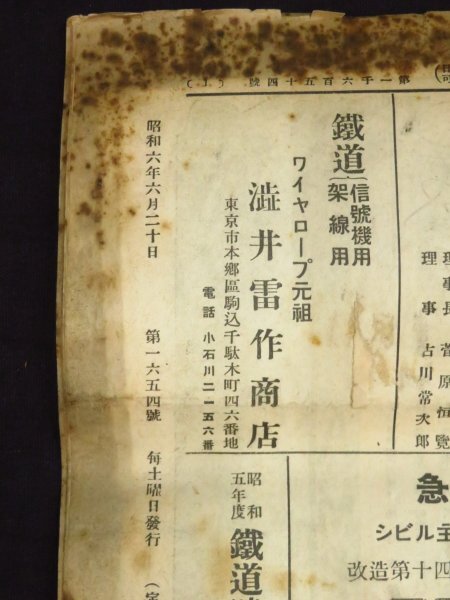 (1) 號四十五百六千一第
理事長 菅原恒覽
理事 古川常次郎
鐵道(信號機用
架線用
ワイヤロープ元祖
澁井雷作商店
東京市本鄉區駒込千駄木町四六番地
電話 小石川二一五六番
昭和六年六月二十日 第一六五四號 每土曜日發行
急
シビル主
改造第十四
昭和五年度
鐵道